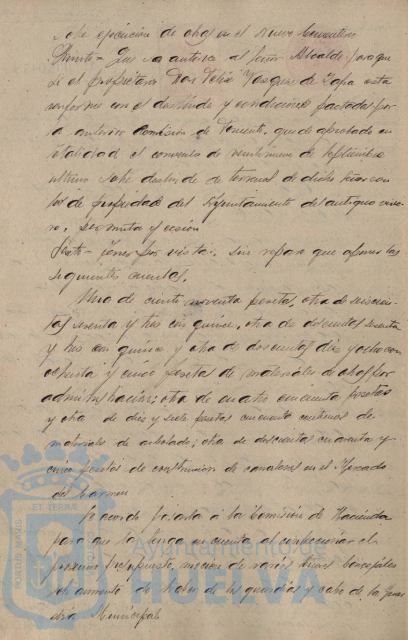 sobre ejecución de obras en el Nuevo Cementerio
Quinto - Que se autorice al Señor Alcalde para que
si el propietario Don Felix Vazquez de Zafra esta
conforme con el deslinde y condiciones pactadas por
la anterior Comisión de Fomento, quede aprobado en
totalidad el convenio de veintinueve de Septiembre
ultimo sobre deslinde de terrenos de dicho Señor con
los de propiedad del Ayuntamiento del antiguo
permuta y cesión
Sexto - poner por vista: sin reparo que oponer las
siguientes cuentas.
Una de ciento noventa pesetas, otra de seiscien
tas sesenta y tres con quince, otra de doscientas sesenta
y tres con quince y otra de doscientas diez y ocho con
ochenta y cinco pesetas de materiales de obras por
administracion; otra de cuatro cincuenta pesetas
y otra de diez y siete pesetas cincuenta centimos de
materiales de arbolado; otra de doscientas cuarenta y
cinco pesetas de construccion de canaletas en el Mercado
del Carmen
Se acordó pasarla á la Comisión de Hacienda
para que la tenga en cuenta al confeccionar el
proximo presupuesto, mocion de varios Sres Concejales
de aumento de haber de los guardias y cabo de la Guar
dia Municipal
PORTUS MARIS ET TERRAE
Ayuntamiento de
HUELVA